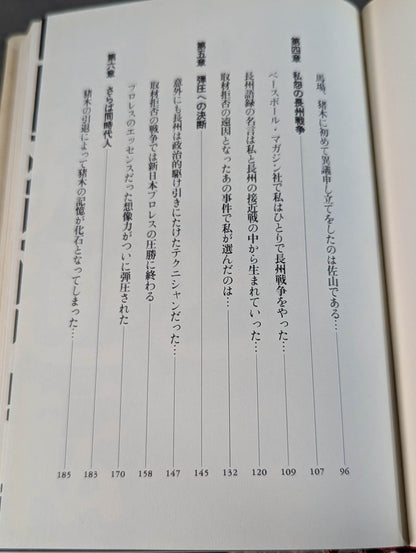 馬場、猪木に初めて異議申し立てをしたのは佐山である… 96
第四章 私怨の長州戦争 107
ベースボール・マガジン社で私はひとりで長州戦争をやった… 109
長州語録の名言は私と長州の接近戦の中から生まれていった… 120
取材拒否の遠因となったあの事件で私が選んだのは… 132
第五章 弾圧への決断 145
意外にも長州は政治的駆け引きにたけたテクニシャンだった… 147
取材拒否の戦争では新日本プロレスの圧勝に終わる 158
プロレスのエッセンスだった想像力がついに弾圧された 170
第六章 さらば同時代人 183
猪木の引退によって猪木の記憶が化石となってしまった… 185